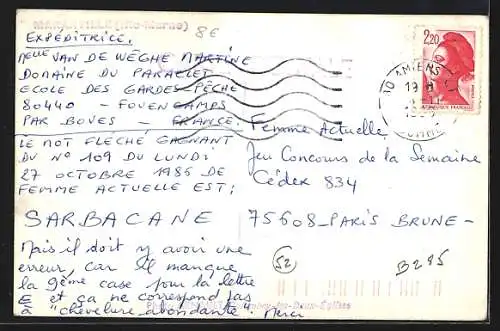 8€
EXPEDITRICE.
Melle VAN DE WEGHE MARTINE
DOMAINE DU PARACLET
ECOLE DES GARDES-PÊCHE
80440 - FOUENCAMPS
PAR BOVES - FRANCE.
LE MOT FLECHÉ GAGNANT
DU N° 109 DU LUNDI
27 OCTOBRE 1986 DE
FEMME ACTUELLE EST:
SARBACANE
Mais il doit y avoir une
erreur, car il manque
la 9ème case pour la lettre
E et ça ne correspond pas
à "chevelure abondante". Merci
2,20
AMIENS
SOMME
Femme Actuelle
Jeu Concours de la Semaine
Cédex 834
75608-PARIS BRUNE-
52
B285
-les-Deux-Églises